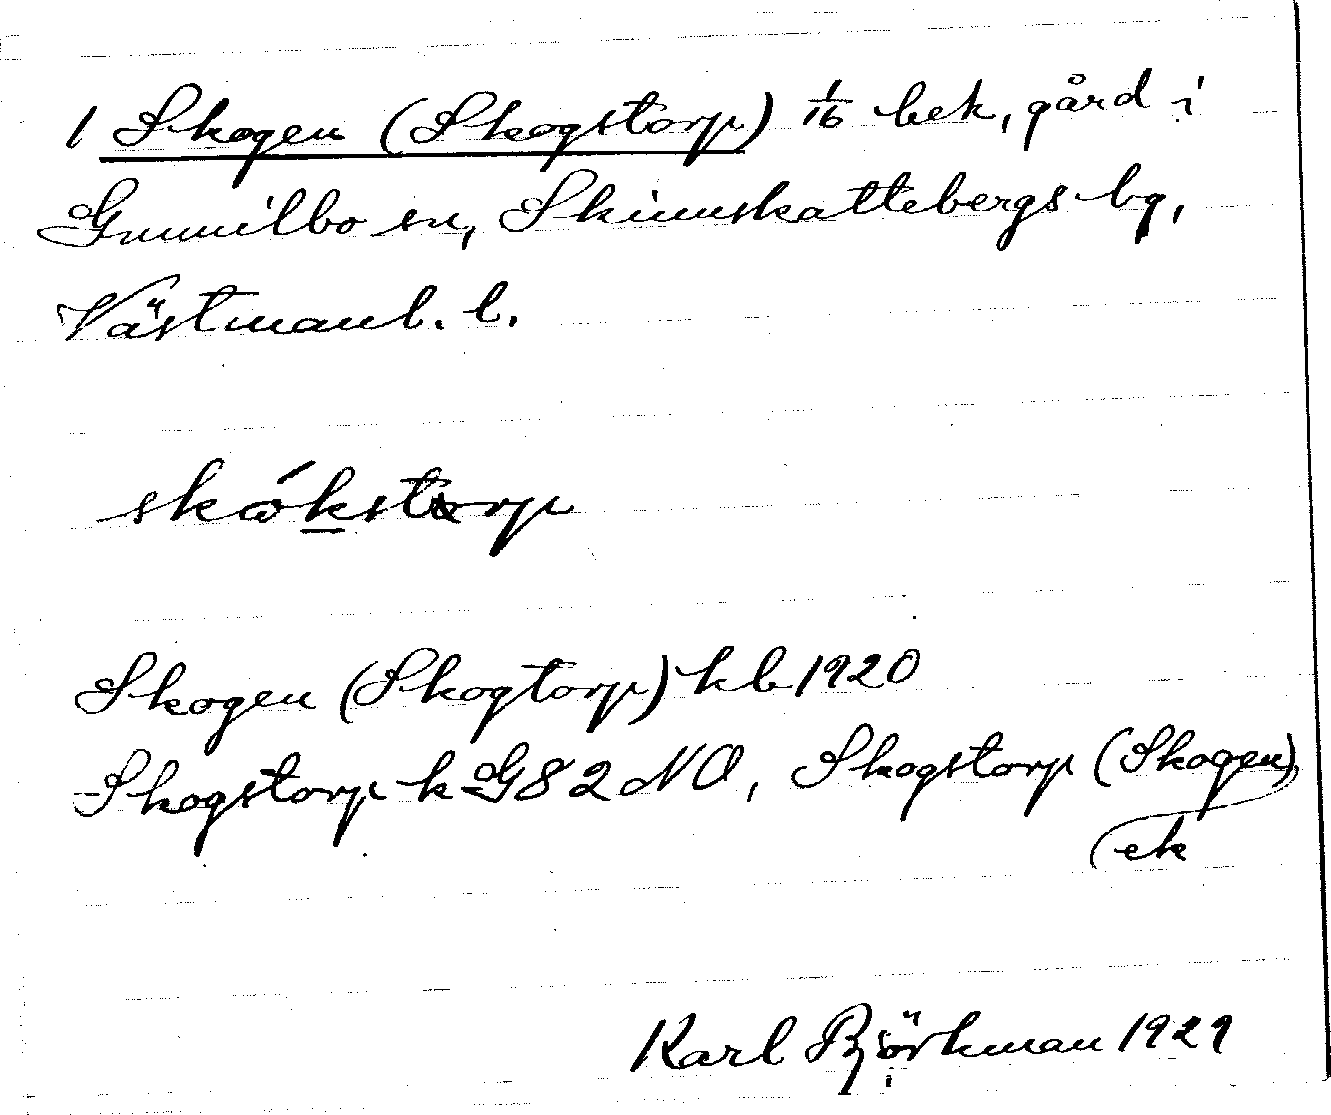 1 Skogen (Skogstorp) 1/16 bek, gård i
Gunnilbo sn, Skinnskattebergs bg,
Västmanl. l.
skókstorp
Skogen (Skogtorp) kb 1920
Skogstorp k G82 NO, Skogstorp (Skogen)
ek
Karl Björkman 1929